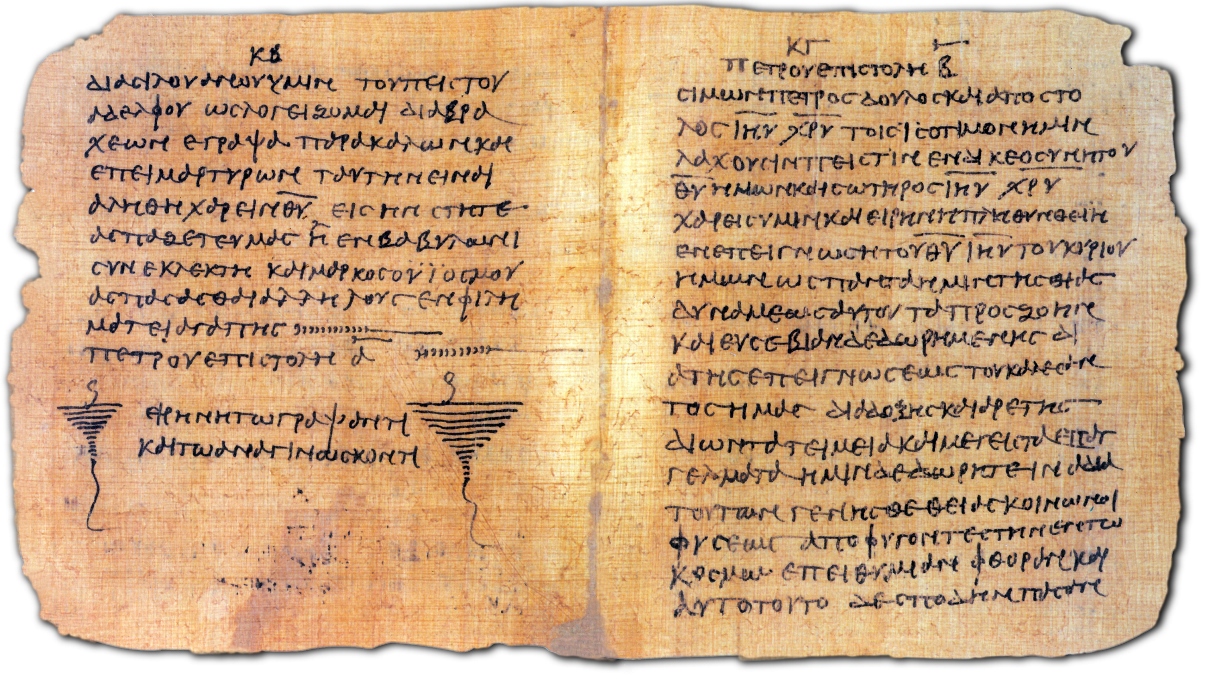 ΚΒ
διασιλουανουυμιν τουπειστου
αδελφου ωσλογειζομαι διαβρα
χεων εγραψα παρακαλωνκαι
επειμαρτυρων ταυτηνειναι
αληθηχαρεινθ̅υ̅ εισην στητε
ασπαζετευμας η ενβαβυλωνι
συνεκλεκτη καιμαρκοσουϊοσμου
ασπασασθαιαλληλους ενφιλη
ματειαγαπης
πετρουεπιστολη α̅
ειρηνητωγραψαντι
καιτωαναγινωσκοντι
ΚΓ
πετρουεπιστολη β̅
σιμωνπετρος δουλοσκαιαποστο
λοσι̅η̅υ̅ χ̅ρ̅υ̅ τοισϊσοτιμονημιν
λαχουσινπειστιν ενδικεοσυνητου
θ̅υ̅ ημωνκαισωτηροσι̅η̅υ̅ χ̅ρ̅υ̅
χαρεισυμινκαιειρηνηπληθυνθειη
ενεπειγνωσητουθ̅υ̅ ι̅η̅υ̅τουκυριου
ημων ωσπανταημιν τησθιας
δυναμεωσαυτου ταπροσζωην
καιευσεβιανδεδωρημενης δι
ατησεπειγνωσεως τουκαλεσαν
τοσημας διαδοξησκαιαρετης
διωντατειμειακαιμεγεισταεπαγ
γελματα ημινδεδωρητεινα δια
τουτων γενησθεθειασκοινωνοι
φυσεως αποφυγοντεστηνεντω
κοσμω επειθυμιαν φθορανκαι
αυτοτουτο δεσποδηνπασαν